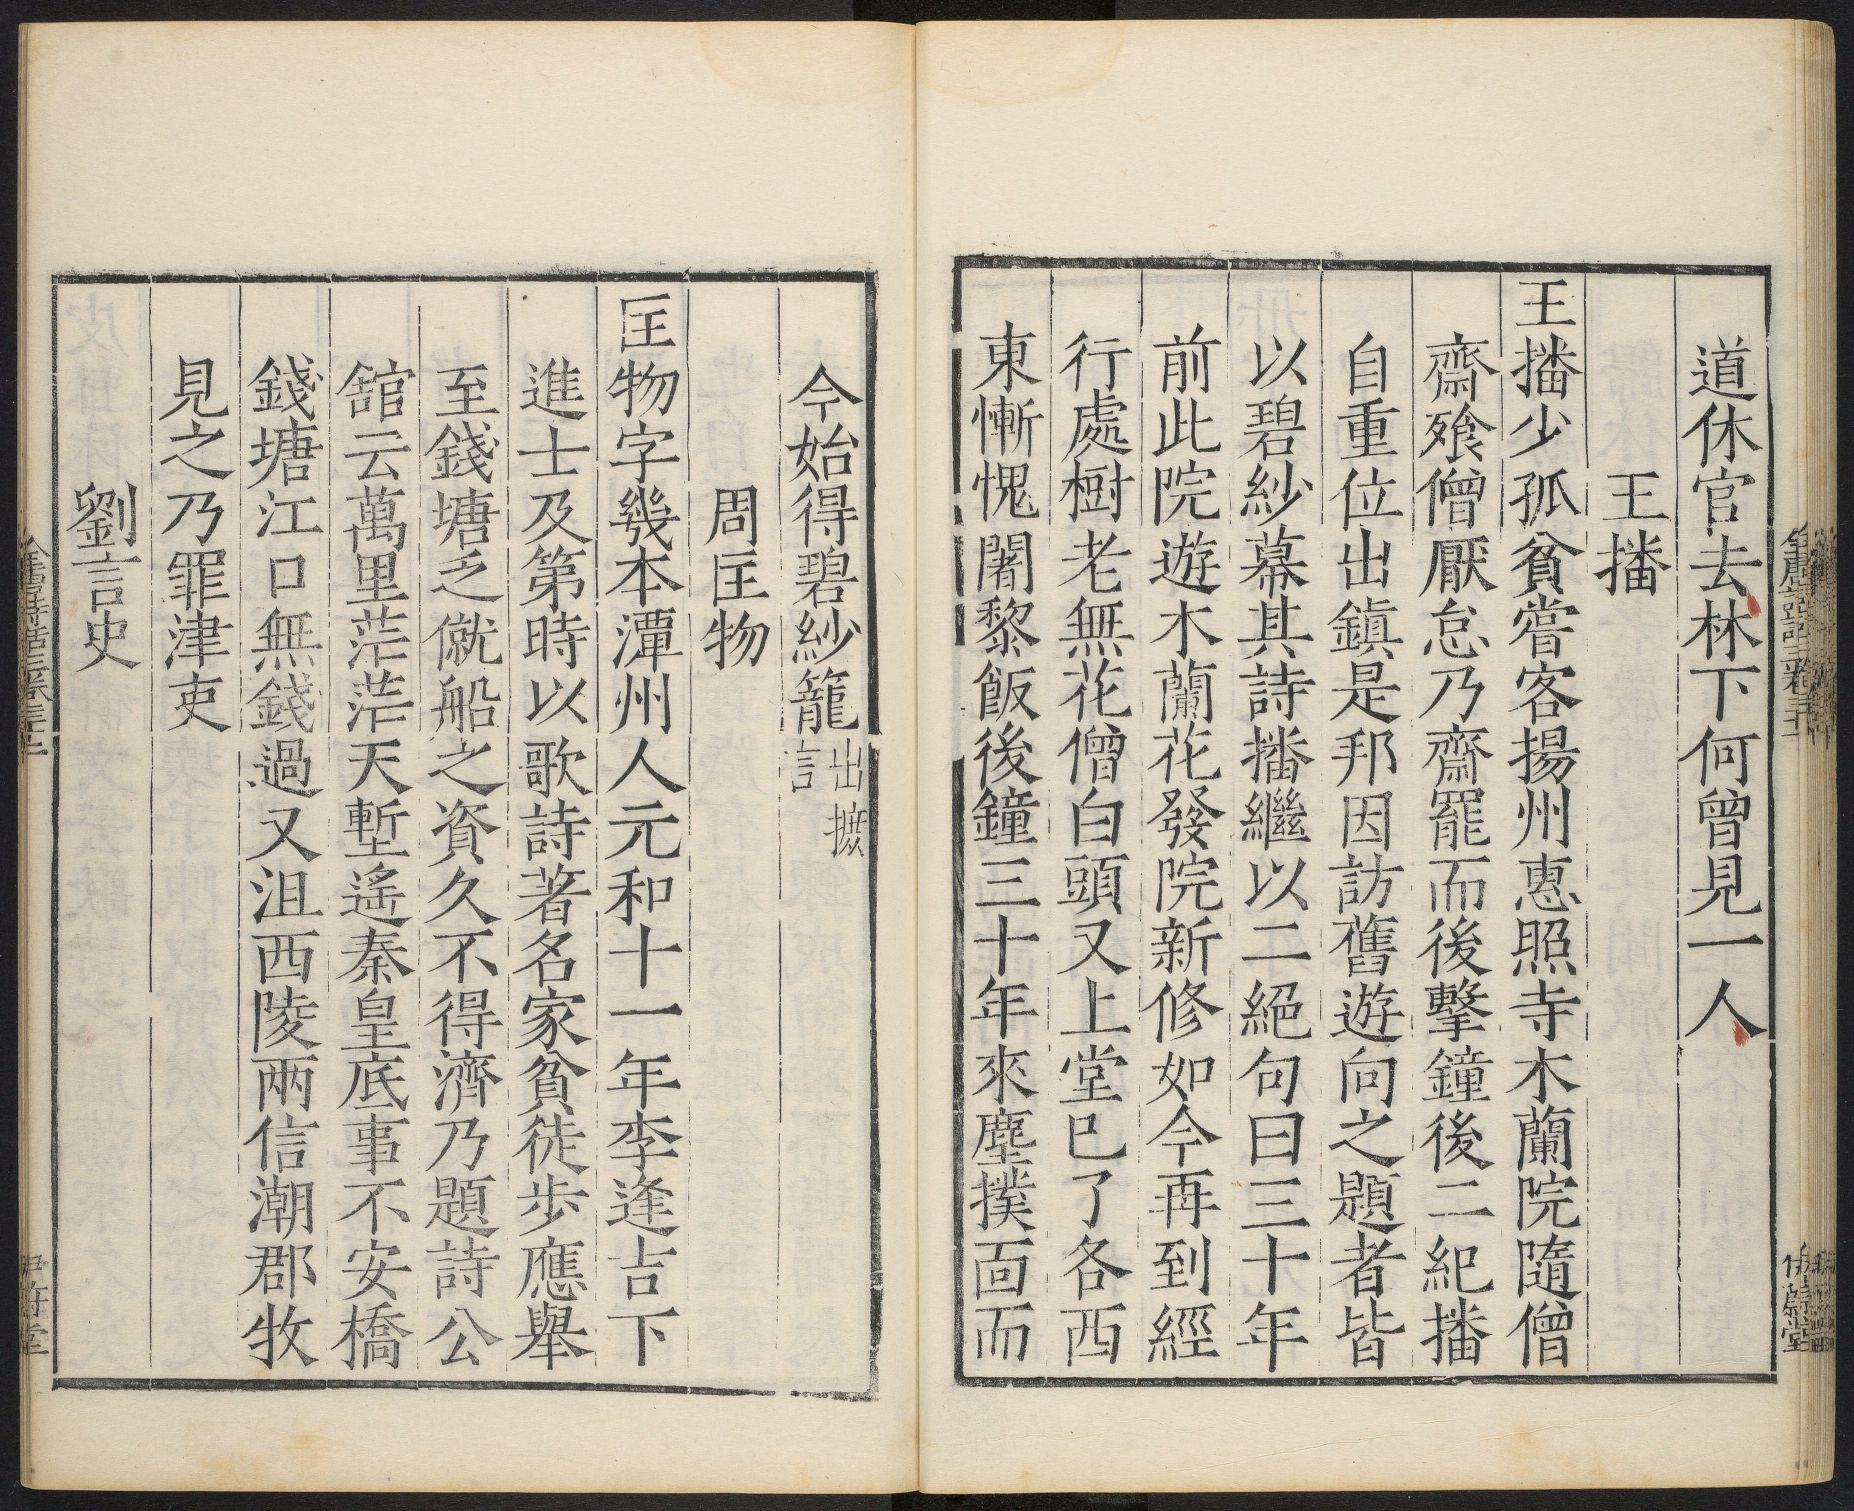 道休官去林下何曾見一人
王播
王播少孤貧嘗客揚州惠照寺木蘭院隨僧
齋飱僧厭怠乃齋罷而後擊鐘後二紀播
自重位出鎮是邦因訪舊遊向之題者皆
以碧紗幕其詩播繼以二絕句曰三十年
前此院遊木蘭花發院新修如今再到經
行處樹老無花僧白頭又上堂已了各西
東慚愧闍黎飯後鐘三十年來塵撲面而
今始得碧紗籠出摭
言
周匡物
匡物字幾本潭州人元和十一年李逢吉下
進士及第時以歌詩著名家貧徒步應舉
至錢塘乏僦船之資久不得濟乃題詩公
舘云萬里茫茫天塹遙秦皇底事不安橋
錢塘江口無錢過又沮西陵兩信潮郡牧
見之乃罪津吏
劉言史